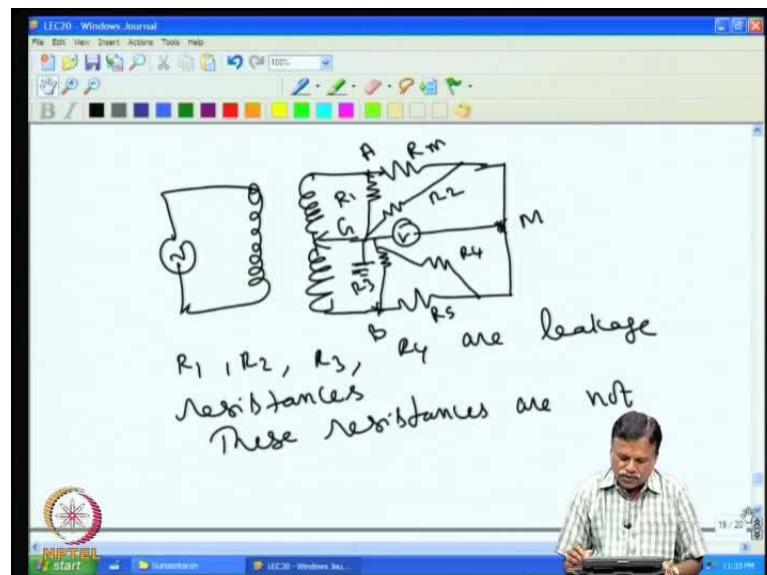 LEC20 - Windows Journal
File Edit View Insert Actions Tools Help
100%
B I
A
Rm
R1
R2
G
V
M
R3
R4
R5
B
R1, R2, R3, R4 are leakage
resistances
These resistances are not
19 / 20
NPTEL
start
LEC20 - Windows Jou...
11:33 PM